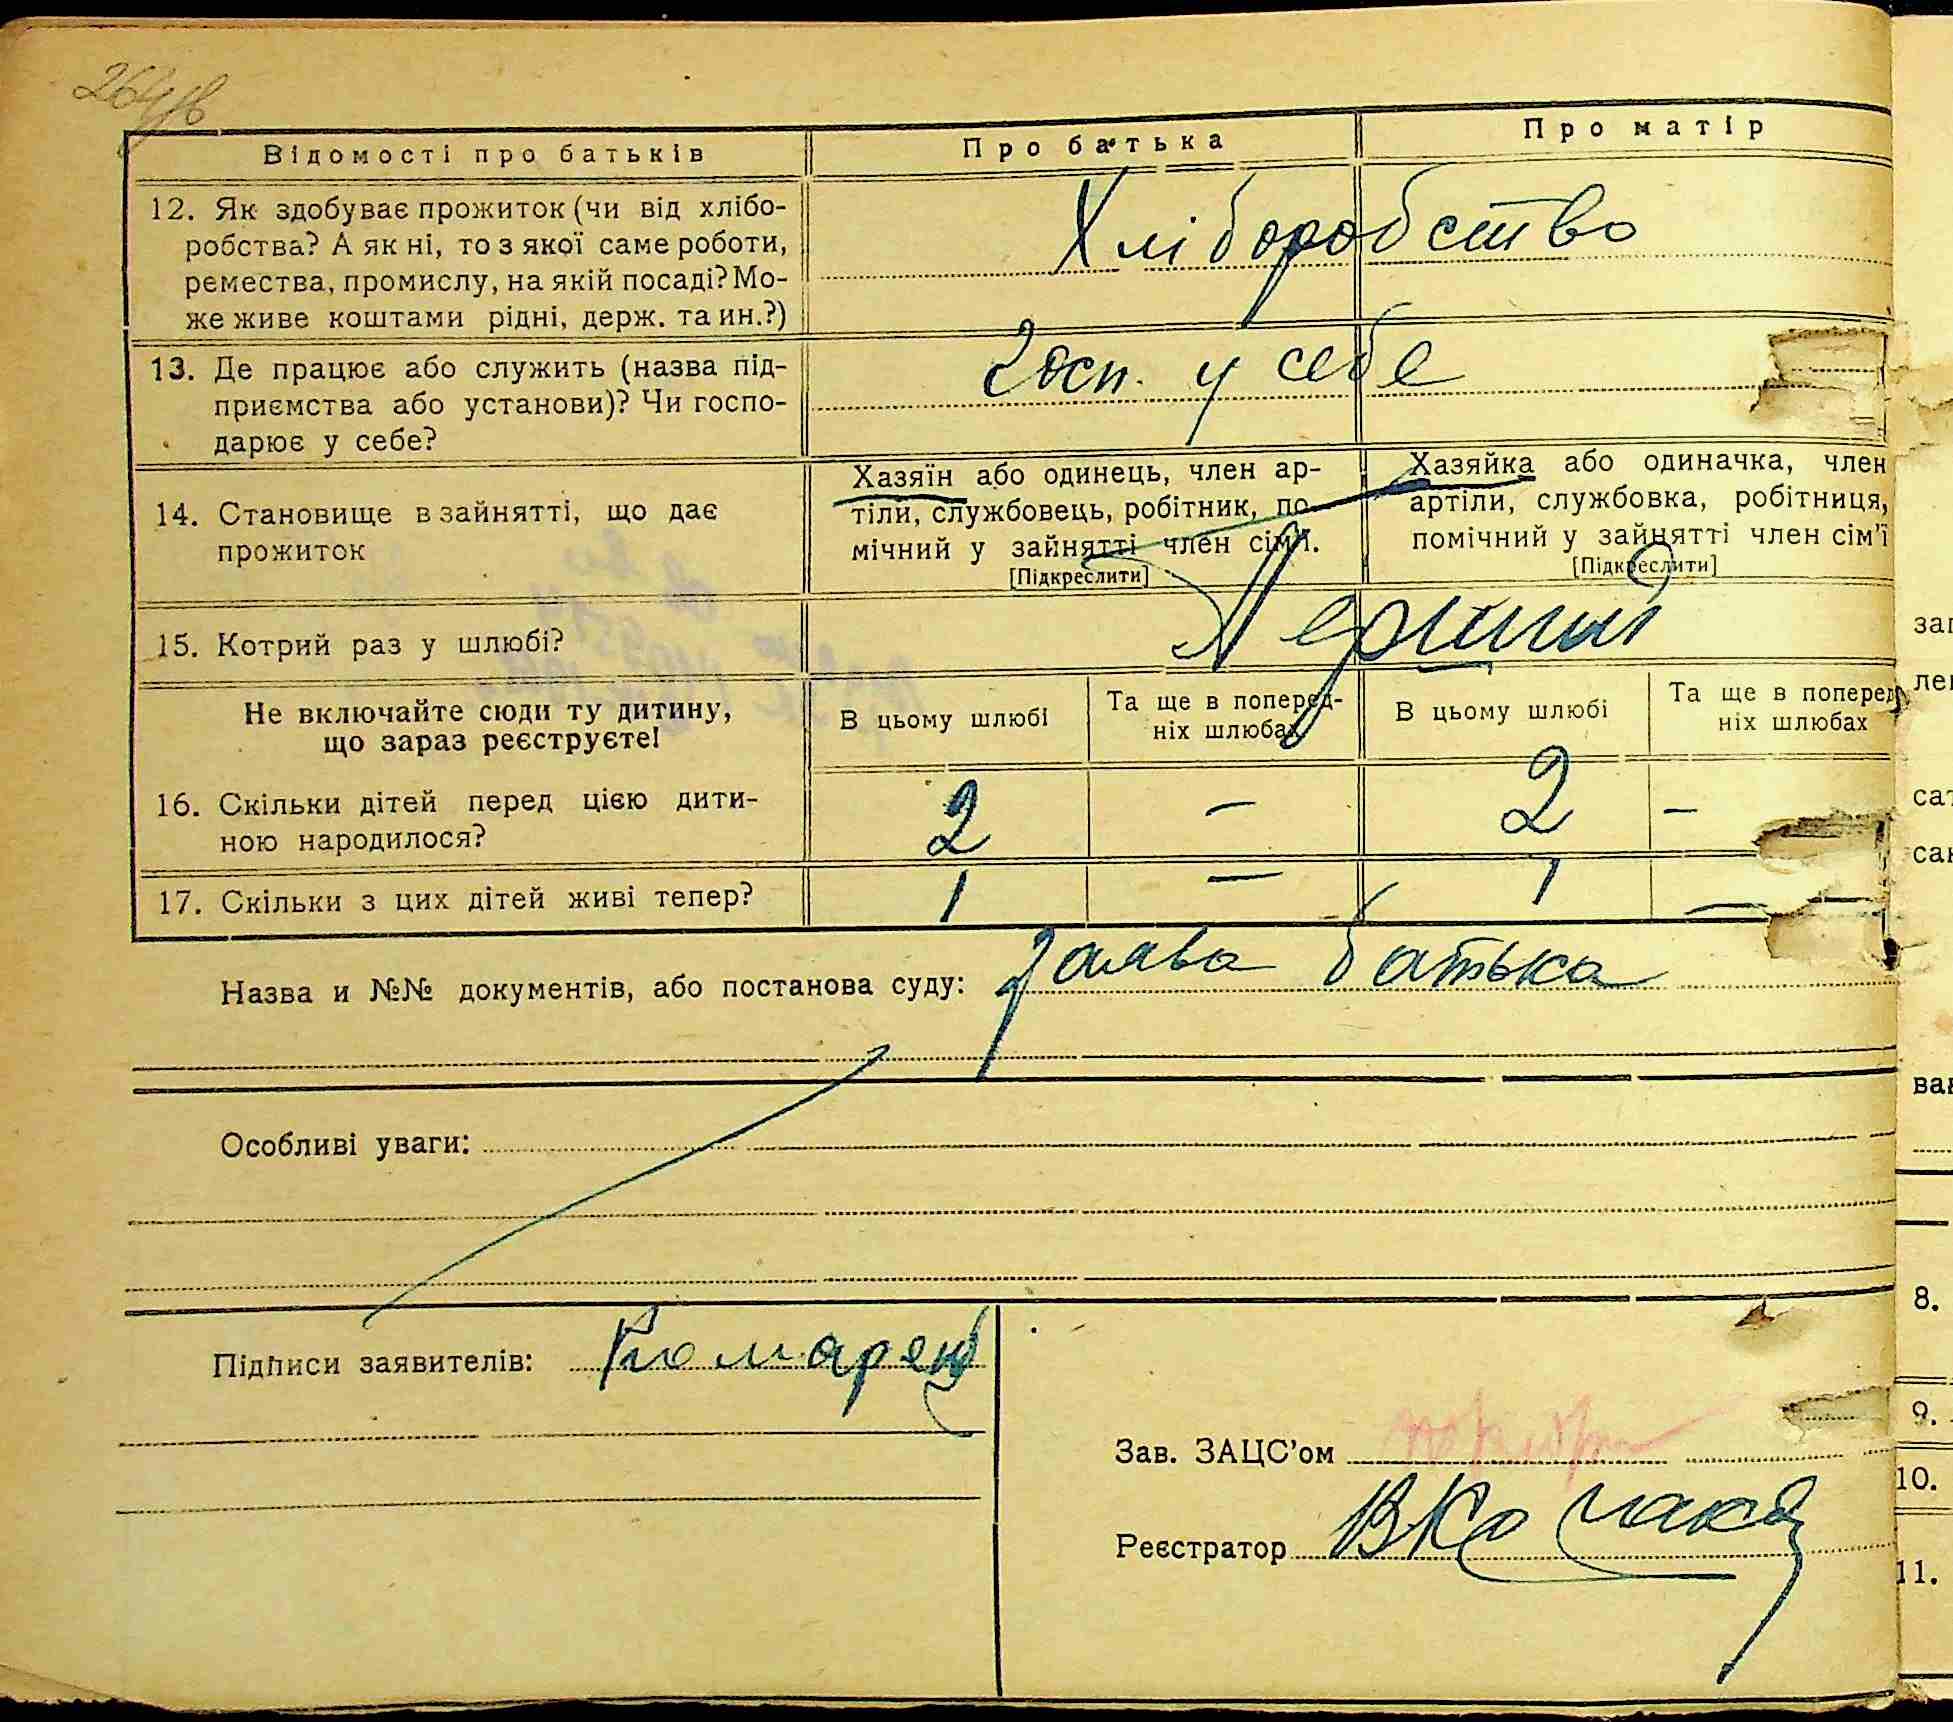 Відомості про батьків Про батька Про матір
12. Як здобуває прожиток (чи від хлібо-
робства? А як ні, то з якої саме роботи,
ремества, промислу, на якій посаді? Мо-
же живе коштами рідні, держ. та ин.?)
Хліборобство
13. Де працює або служить (назва під-
приємства або установи)? Чи госпо-
дарює у себе?
Госп. у себе
14. Становище в зайнятті, що дає
прожиток
Хазяїн або одинець, член ар-
тіли, службовець, робітник, по-
мічний у зайнятті член сім'ї.
[Підкреслити]
Хазяйка або одиначка, член
артіли, службовка, робітниця,
помічний у зайнятті член сім'ї
[Підкреслити]
15. Котрий раз у шлюбі?
Перший
Не включайте сюди ту дитину,
що зараз реєструєте!
В цьому шлюбі
Та ще в поперед-
ніх шлюбах
В цьому шлюбі
Та ще в поперед
ніх шлюбах
16. Скільки дітей перед цією дити-
ною народилося?
2 — 2 —
17. Скільки з цих дітей живі тепер?
1 — 1 —
Назва и №№ документів, або постанова суду: Заява батька
Особливі уваги:
Підписи заявителів:
Зав. ЗАЦС'ом
Реєстратор
8.
9.
10.
11.